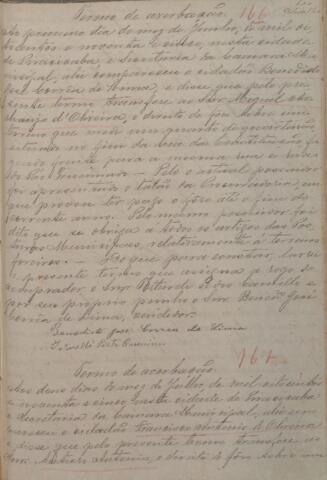 Termo de averbação 166
Ao primeiro dia do mez de Junho, de mil oi
tocentos e noventa e cinco, nesta cidade
de Piracicaba e Secretaria da Camara Mu
nicipal, ahi compareceu o cidadão Benedicto
José Corrêa de Lima, e disse que pelo pre
sente termo transfere ao Snr Miguel
Araujo d'Oliveira, o direito de fôro sobre um
terreno que mede um quarto de quarteirão,
situado no fim da
fazendo frente para a mesma rua e
Pelo actual possuidor
foi apresentado o talão da Procuradoria em
que provou ter pago o fôro até o fim do
corrente anno. Pelo mesmo possuidor foi
dito que se obriga a todos os artigos das Pos
turas Municipaes, relativamente á terrenos
foreiros. Do que para constar, lavrei
o presente termo que assigna a rogo do
comprador, o Snr
por seu proprio punho o Snr Benedicto José
Corrêa de Lima, vendedor.
Benedicto José Correa de Lima
167
Termo de averbação
Aos doze dias do mez de Julho, de mil oitocentos
e noventa e cinco, nesta cidade de Piracicaba
e Secretaria da Camara Municipal, ahi com
pareceu o cidadão Francisco Antonio de Oliveira
e disse que pelo presente termo transfere ao
Snr. Antonio, o direito de fôro sobre um